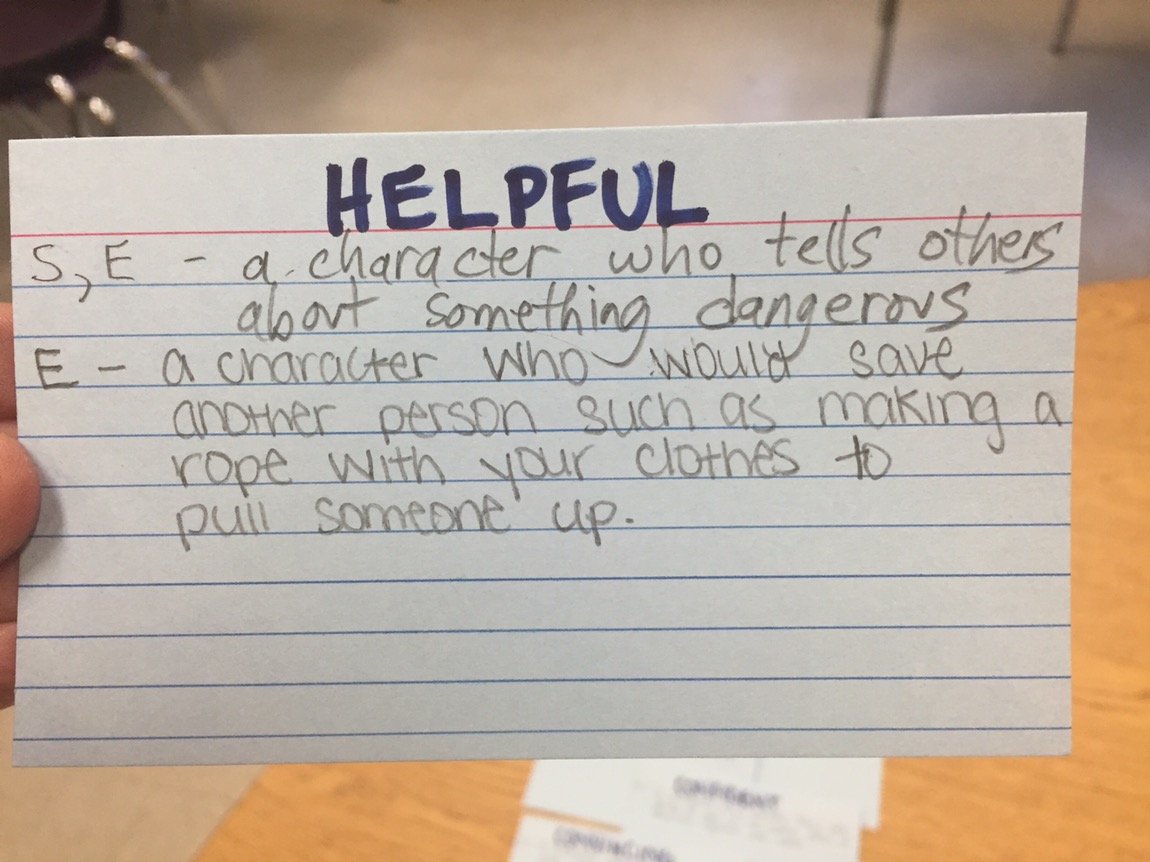 HELPFUL
S, E - a character who tells others
about something dangerous
E - a character who would save
another person such as making a
rope with your clothes to
pull someone up.
CONFIDENT